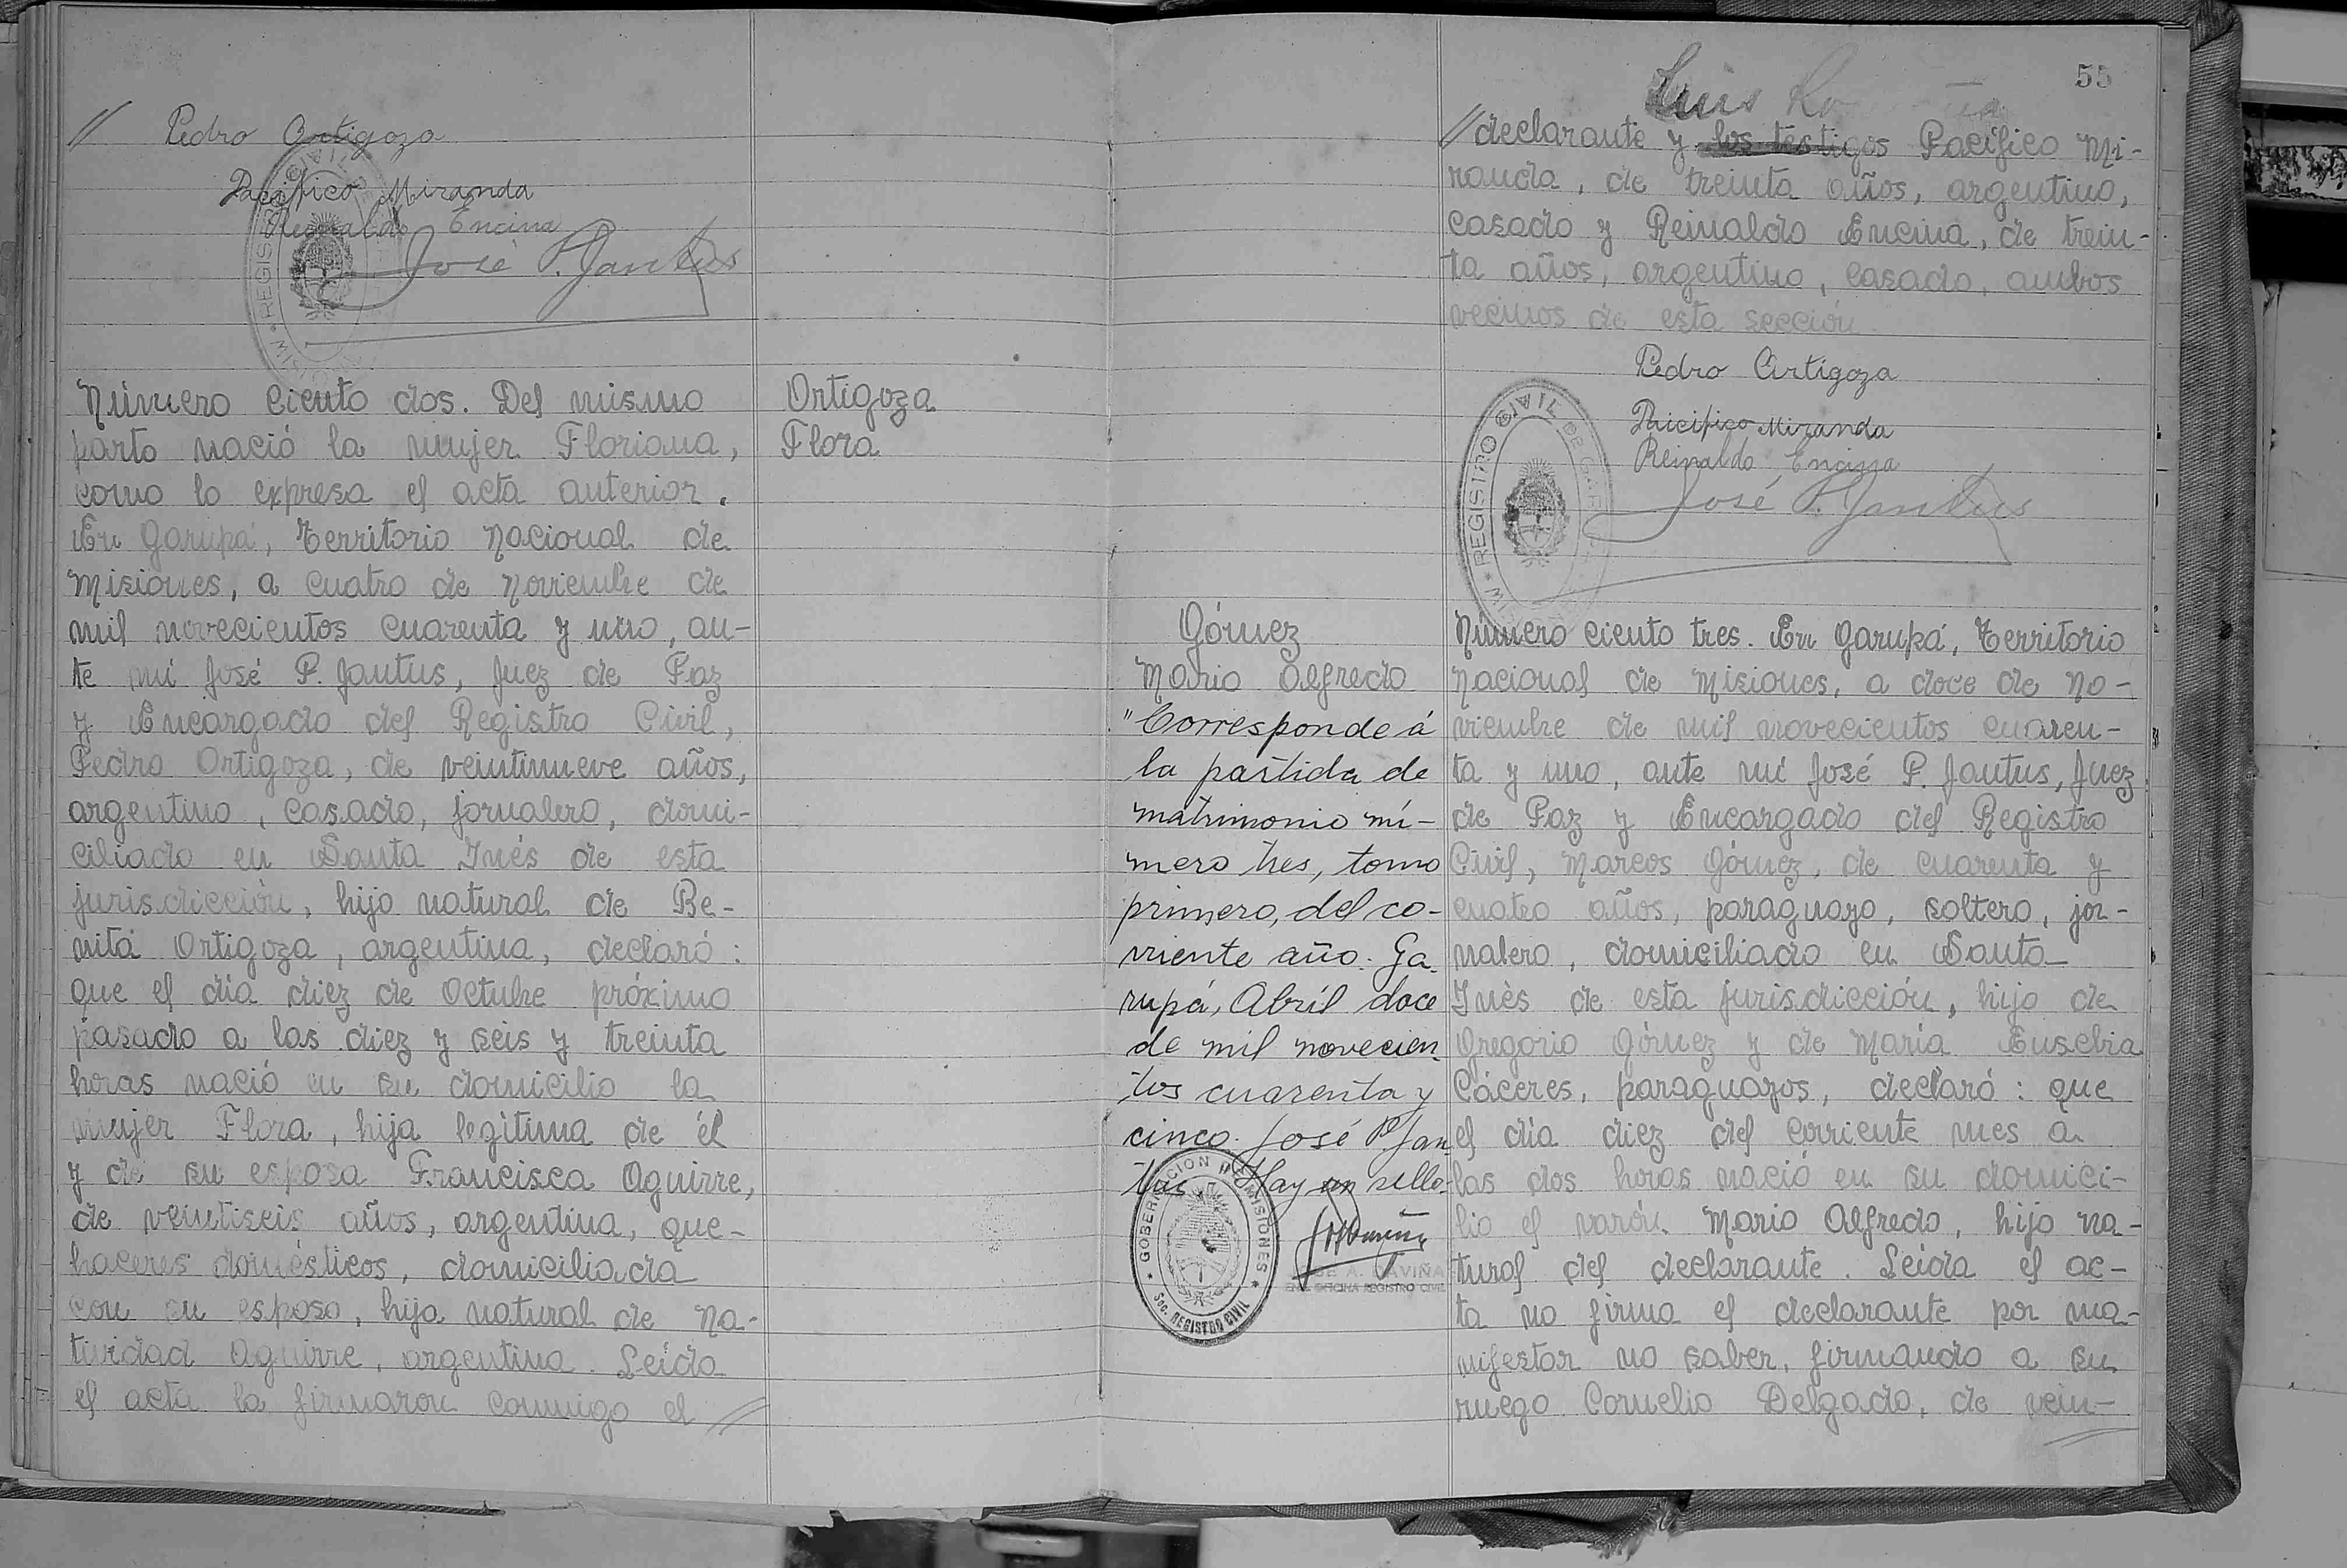 // Pedro Ortigoza
Pacifico Miranda
Reinaldo Encina
José P. Jantus
Número ciento dos. Del mismo
parto nació la mujer Floriana,
como lo expresa el acta anterior.
En Garupá, Territorio Nacional de
Misiones, a cuatro de Noviembre de
mil novecientos cuarenta y uno, an-
te mí José P. Jantus, Juez de Paz
y Encargado del Registro Civil,
Pedro Ortigoza, de veintinueve años,
argentino, casado, jornalero, domi-
ciliado en Santa Inés de esta
jurisdicción, hijo natural de Be-
nita Ortigoza, argentina, declaró:
que el día diez de Octubre próximo
pasado a las diez y seis y treinta
horas nació en su domicilio la
mujer Flora, hija legítima de él
y de su esposa Francisca Aguirre,
de veintiseis años, argentina, que-
haceres domésticos, domiciliada
con su esposo, hija natural de Na-
tividad Aguirre, argentina. Leída
el acta la firmaron conmigo el //
Ortigoza
Flora
55
Luis
// declarante y los testigos Pacífico Mi-
randa, de treinta años, argentino,
casado y Reinaldo Encina, de trein-
ta años, argentino, casado, ambos
vecinos de esta sección
Pedro Ortigoza
Pacifico Miranda
Reinaldo Encina
José P. Jantus
REGISTRO CIVIL DE
Gómez
Mario Alfredo
"Corresponde á
la partida de
matrimonio nú-
mero tres, tomo
primero, del co-
rriente año. Ga-
rupá, Abril doce
de mil novecien
tos cuarenta y
cinco. José P. Jan
tus. Hay un sello.
GOBERNACION DE MISIONES
SEC. REGISTRO CIVIL
OFICINA REGISTRO CIVIL
Número ciento tres. En Garupá, Territorio
Nacional de Misiones, a doce de No-
viembre de mil novecientos cuaren-
ta y uno, ante mí José P. Jantus, Juez
de Paz y Encargado del Registro
Civil, Marcos Gómez, de cuarenta y
cuatro años, paraguayo, soltero, jor-
nalero, domiciliado en Santa
Inés de esta jurisdicción, hijo de
Gregorio Gómez y de María Eusebia
Cáceres, paraguayos, declaró: que
el día diez del corriente mes a
las dos horas nació en su domici-
lio el varón Mario Alfredo, hijo na-
tural del declarante. Leída el ac-
ta no firma el declarante por ma-
nifestar no saber, firmando a su
ruego Cornelio Delgado, de vein-